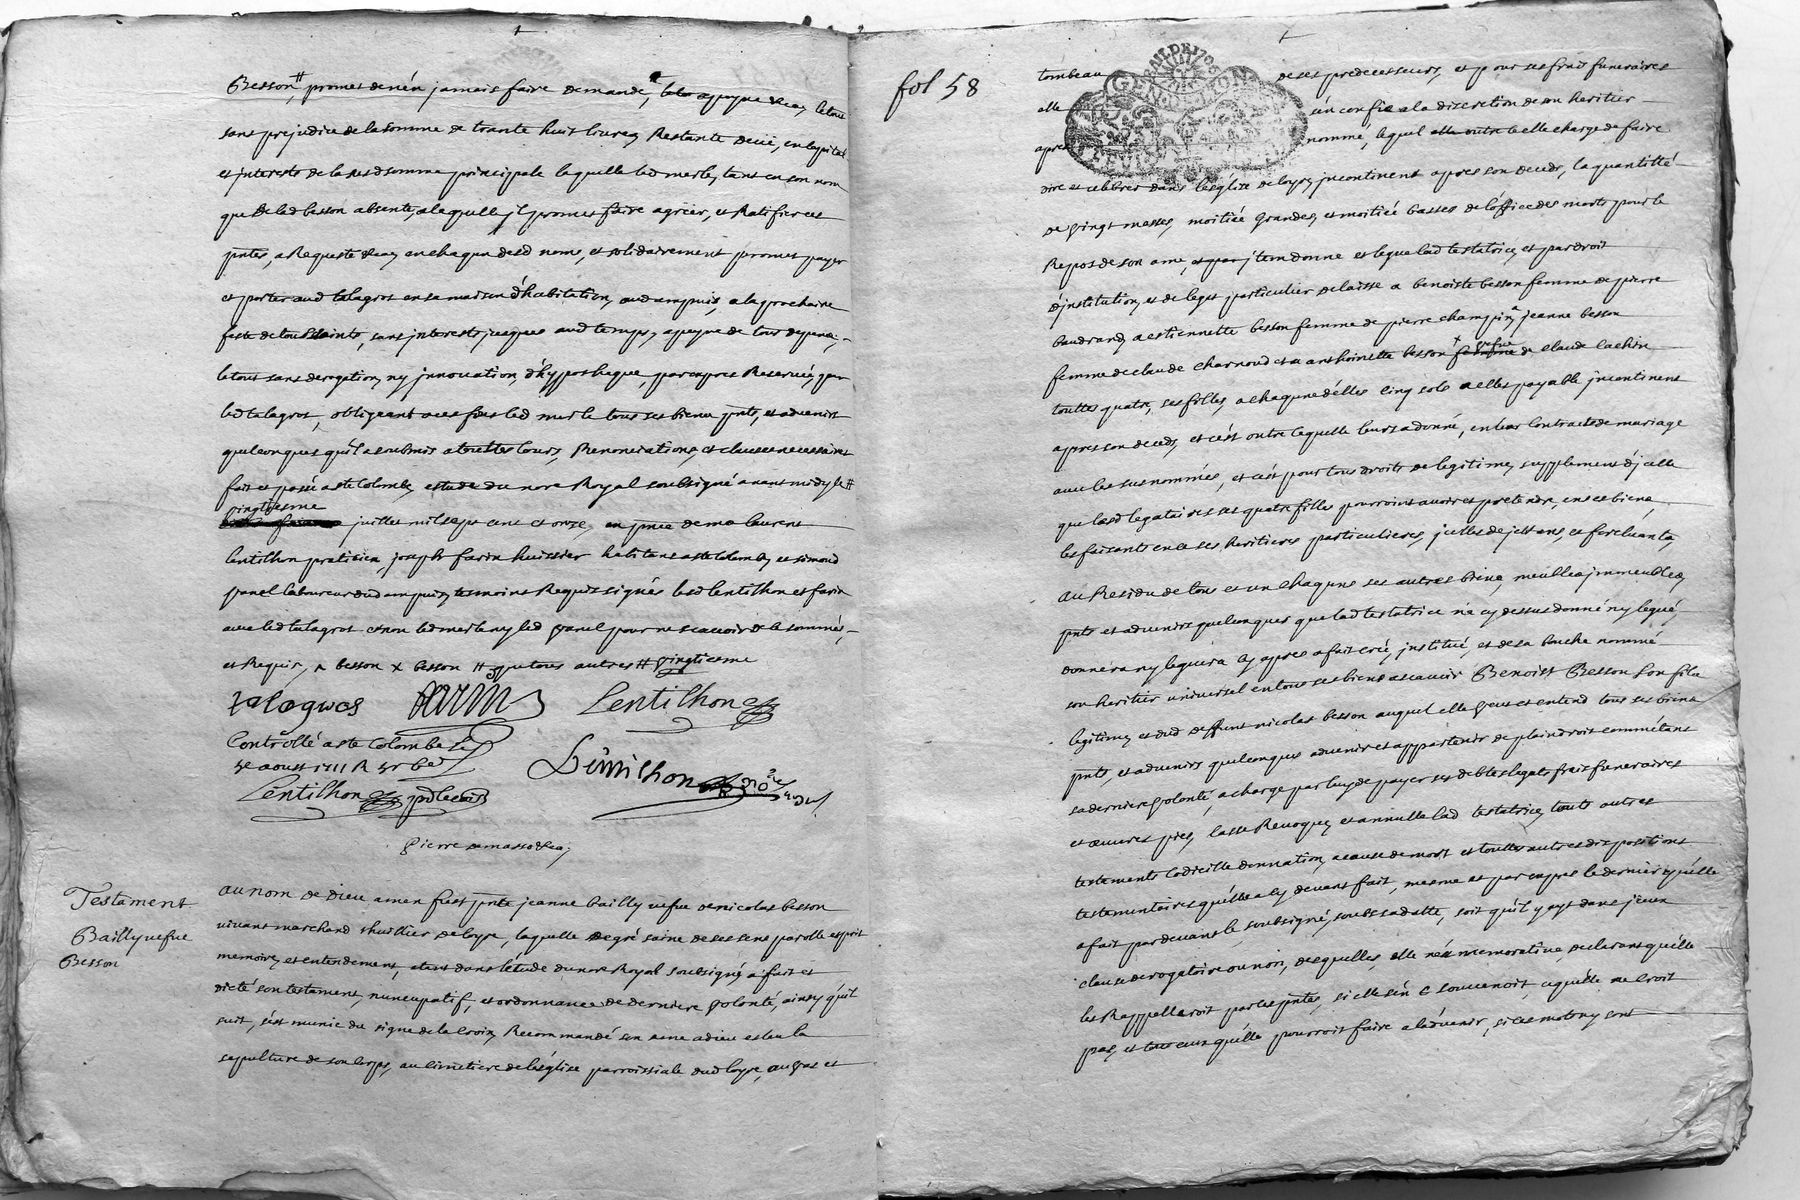 Besson, promet den'en jamais faire demande, le tout
sans prejudice de la somme de trante huit livres Restante deüe, en capital
et jnterests de la susd somme principale laquelle led merle, tant en son nom
que de lad besson absente, a laquelle jl promet faire agréer, et Ratifier ces
pntes, a Requeste en chaqun desd noms, et solidairement promet payer
et porter aud talagrot en sa maison d'habitation, aud ampuis, a la prochaine
feste de tous saints, sans jnterests jusques aud temps, a peyne de tous depens,
le tout sans derogation, ny jnnovation, d'hypotheque, par expres Reservée, par
led talagrot, obligeant aux fins led merle tous ses biens pnts, et advenirs
quelconques qu'il a soubmis a touttes Cours, Renonciations, et clauses necessaires
fait et passé a ste Colombe, estude du nore Royal soubsigné avant midy le #
vingtiesme
juillet mil sept cent et onze, en pnce de me laurent
Lentilhon praticien, joseph farin huissier habitans a ste Colombe, et simond
panel laboureur dud ampuis, tesmoins Requis signés lesd lentilhon et farin
avec led talagrot et non led merle ny led panel pour ne scavoir de ce sommés,
et Requis, besson x besson # vingtiesme
talagros farin Lentilhon
Controllé a ste Colombe le
3e aoust 1711 R
Lentilhon
Lentilhon nore
Testament
Bailly vefve
Besson
au nom de Dieu amen fust pnte jeanne bailly vefve de nicolas besson
vivant marchand thuillier de loyre, laquelle de gré saine de ses sens parolle esprit
memoire, et entendement, estant dans l'etude du nore Royal soubsigné, a fait et
dicté son testament, nuncupatif, et ordonnance de derniere volonté, ainsy qu'il
suit, s'est munie du signe de la Croix, Recommandé son ame a dieu esleu la
sepulture de son corps, au cimetiere de l'église parroissiale dud loyre, au vas et
fol 58
GEN DE LYON
tombeau de ses predecesseurs, et pour ses frais funeraires
elle s'en confie a la discretion de son heritier
apres nommé, lequel elle charge de faire
dire et celebrer dans l'eséglize de loyre, jncontinent apres son deceds, la quantitté
de vingt messes, moitiée grandes, et moitiée basses de l'office des morts pour le
Repos de son ame, jtem donne et legue lad testatrice, et par droit
d'jnstitution, et de legat particulier delaisse a benoiste besson femme de pierre
baudrand, a estiennette besson femme de pierre champin, jeanne besson
femme de claude charnoud et a anthoinette besson vefve de claude cachin
touttes quatre, ses filles, a chaqune d'elles Cinq sols a elles payable jncontinent
apres son deceds, et c'est outre ce qu'elle leurs a donné, en leur Contracts de mariage
avec les susnommés, et c'est pour tous droits de legitime, supplement d'jcelle
que lesd legataires ses quatre filles pourroint avoir et pretendre, en ses biens
les faisants en ce ses heritieres particulieres, jcelles dejettans, et forcluants,
au Residu de tous et un chaquns ses autres biens, meubles, jmmeubles,
pnts et advenirs quelconques que lad testatrice n'a cy dessus donné ny legué,
donnera ny leguera cy apres a fait créé, jnstitué, et de sa bouche nommé
son heritier universel en tous ses biens ascavoir Benoist Besson son fils
legitime, et dud deffunt nicolas besson auquel elle veut et entend tous ses biens
pnts, et advenirs quelconques advenir et appartenir de plain droit comme étant
sa derniere volonté, a charge par luy de payer ses debtes legats frais funeraires
et œuvres pies, Casse Revoque, et annulle lad testatrice, touts autres
testaments Codicille donnation, a cause de mort et touttes autres dispositions
testamentaires qu'elle a cy devant fait, mesme et par expres le dernier qu'elle
a fait pardevant le soubsigné, soubs sa datte, soit qu'il y ayt dans jceux
clause derogatoire ou non, desquelles, elle n'est memorative, declarant qu'elle
les Rappelleroit par ces pntes, si elle s'en souvenoit, ce qu'elle ne croit
pas, et tous ceux qu'elle pourroit faire a l'advenir, si ces mots ny sont